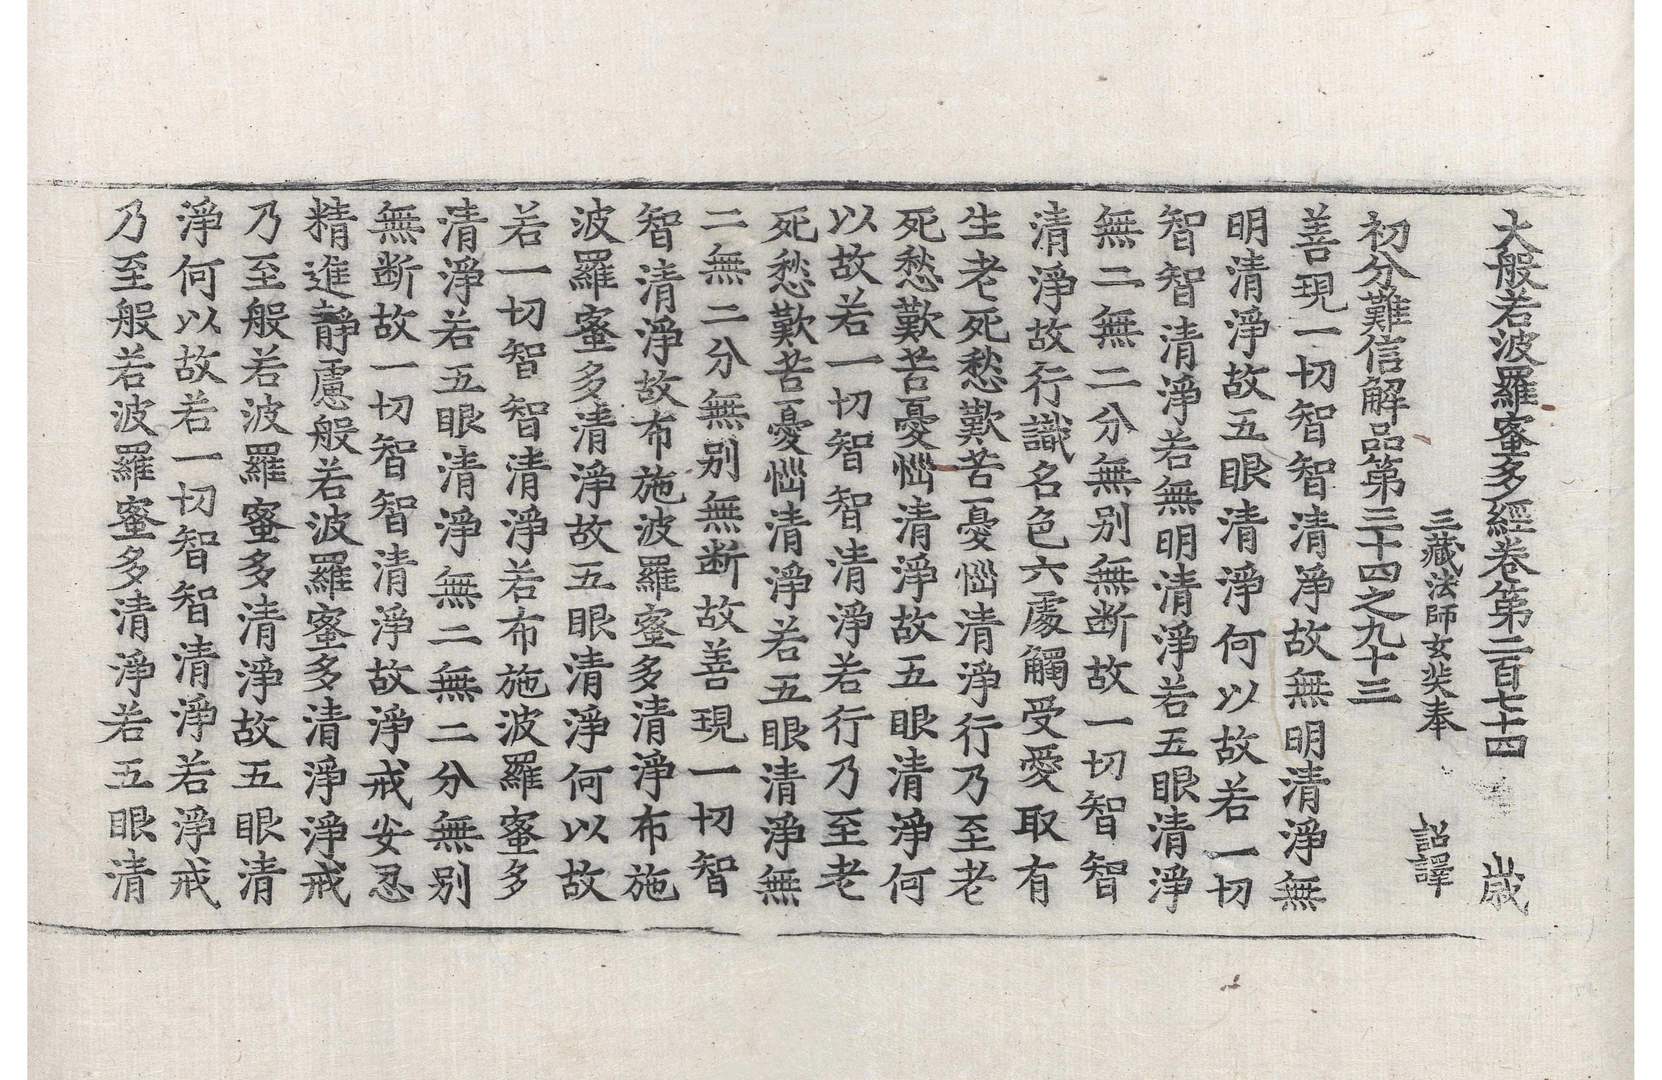 大般若波羅蜜多經卷第二百七十四 歲
三藏法師玄奘奉 詔譯
初分難信解品第三十四之九十三
善現一切智智清淨故無明清淨無
明清淨故五眼清淨何以故若一切
智智清淨若無明清淨若五眼清淨
無二無二分無别無斷故一切智智
清淨故行識名色六處觸受愛取有
生老死愁歎苦憂惱清淨行乃至老
死愁歎苦憂惱清淨故五眼清淨何
以故若一切智智清淨若行乃至老
死愁歎苦憂惱清淨若五眼清淨無
二無二分無别無斷故善現一切智
智清淨故布施波羅蜜多清淨布施
波羅蜜多清淨故五眼清淨何以故
若一切智智清淨若布施波羅蜜多
清淨若五眼清淨無二無二分無别
無斷故一切智智清淨故淨戒安忍
精進靜慮般若波羅蜜多清淨淨戒
乃至般若波羅蜜多清淨故五眼清
淨何以故若一切智智清淨若淨戒
乃至般若波羅蜜多清淨若五眼清